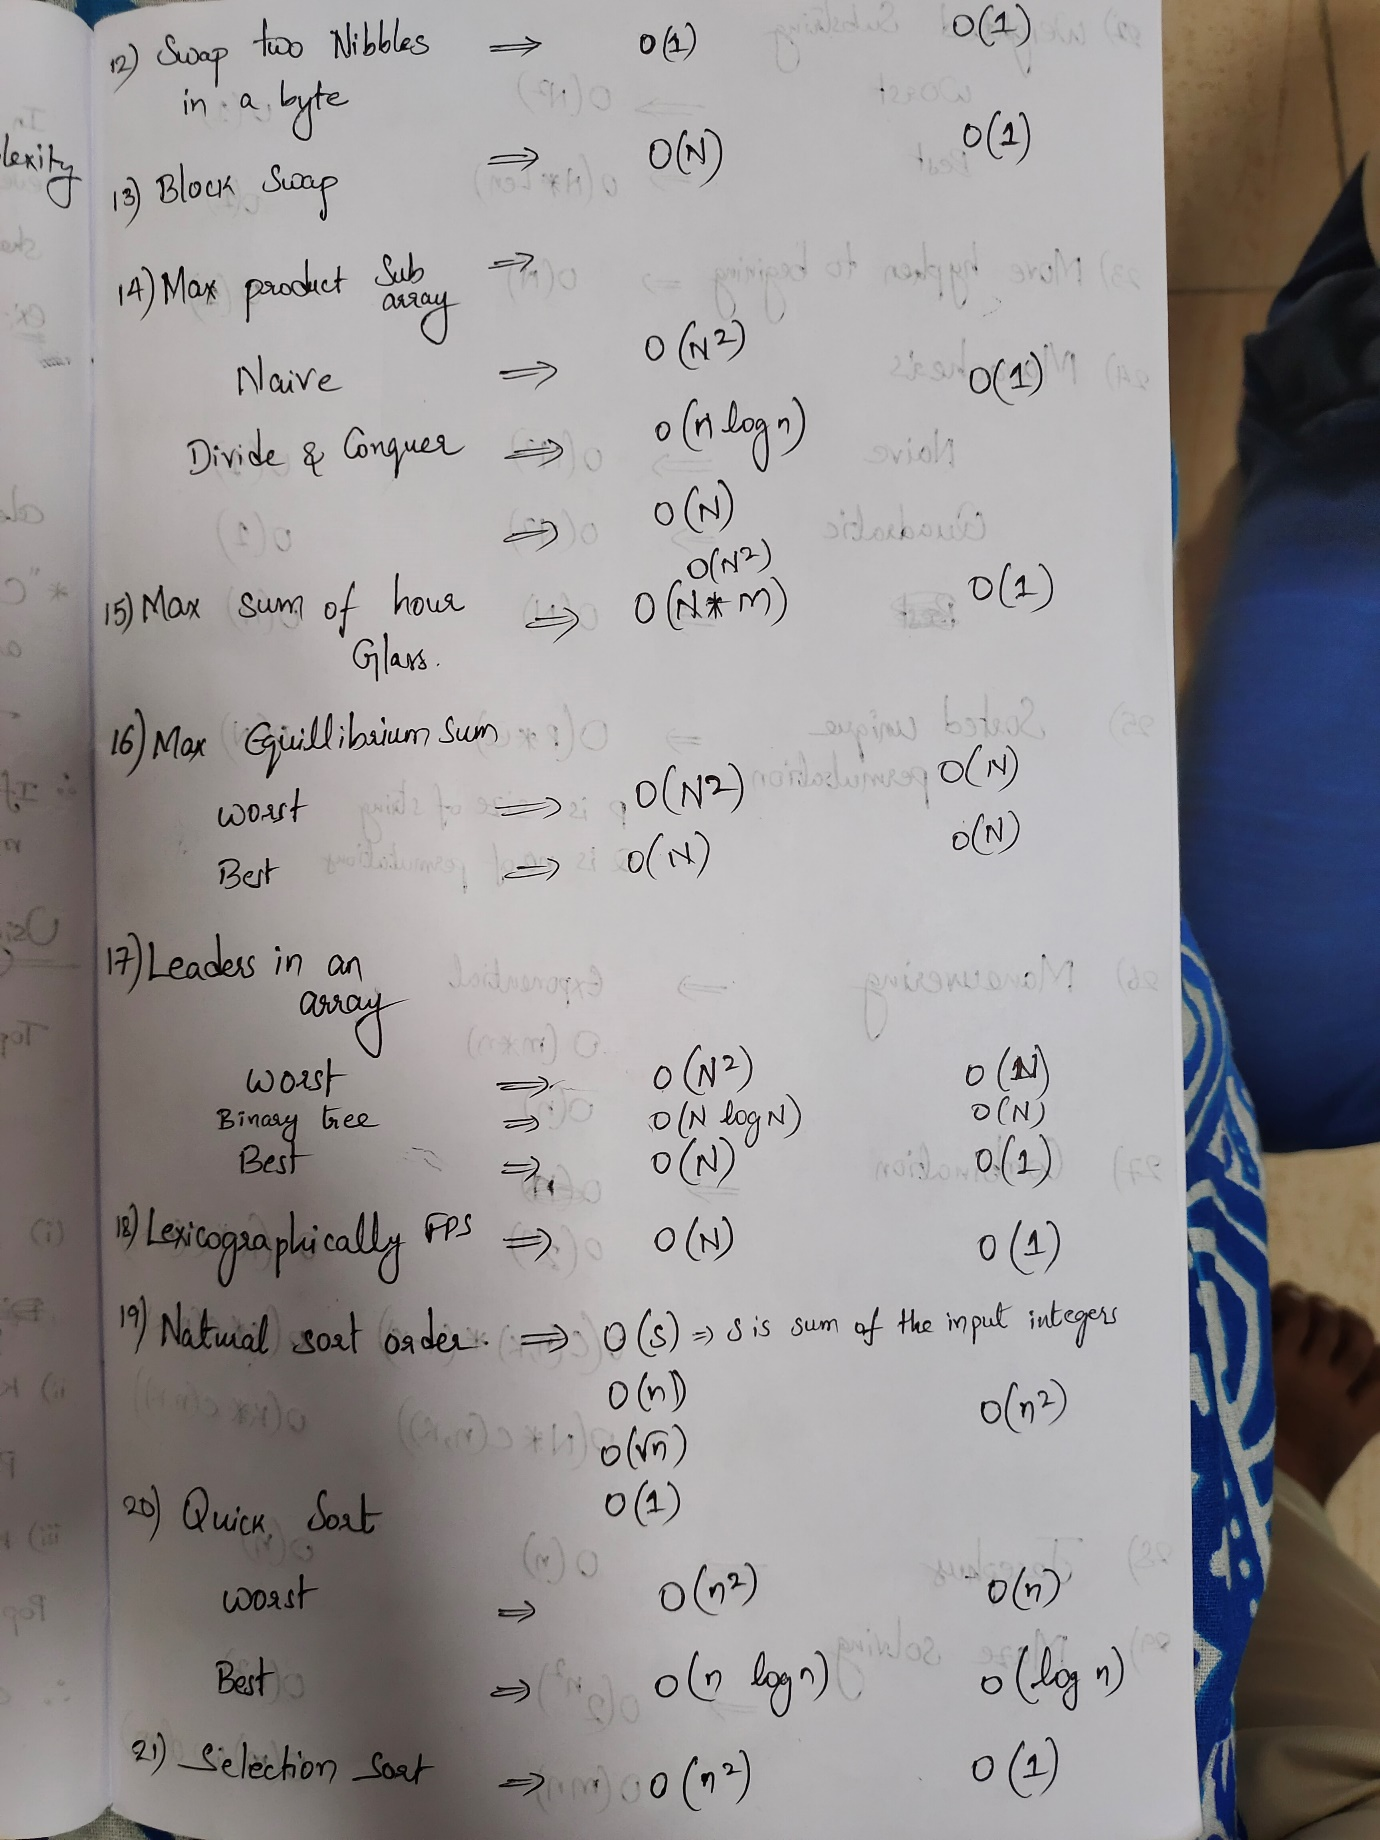 lexity
12) Swap two Nibbles ⇒ O(1) O(1)
in a byte
13) Block Swap ⇒ O(N) O(1)
14) Max product Sub array ⇒
Naive ⇒ O(N²) O(1)
Divide & Conquer ⇒ O(n log n)
⇒ O(N)
O(N²)
15) Max sum of hour ⇒ O(N*m) O(1)
Glass.
16) Max Equillibrium Sum
worst ⇒ O(N²) O(N)
Best ⇒ O(N) O(N)
17) Leaders in an
array
worst ⇒ O(N²)
Binary tree ⇒ O(N log N) O(N)
Best ⇒ O(N) O(1)
18) Lexicographically FPS ⇒ O(N) O(1)
19) Natural sort order. ⇒ O(s) ⇒ s is sum of the input integers
O(n) O(n²)
O(√n)
O(1)
20) Quick Sort
worst ⇒ O(n²) O(n)
Best ⇒ O(n log n) O(log n)
21) Selection Sort ⇒ O(n²) O(1)